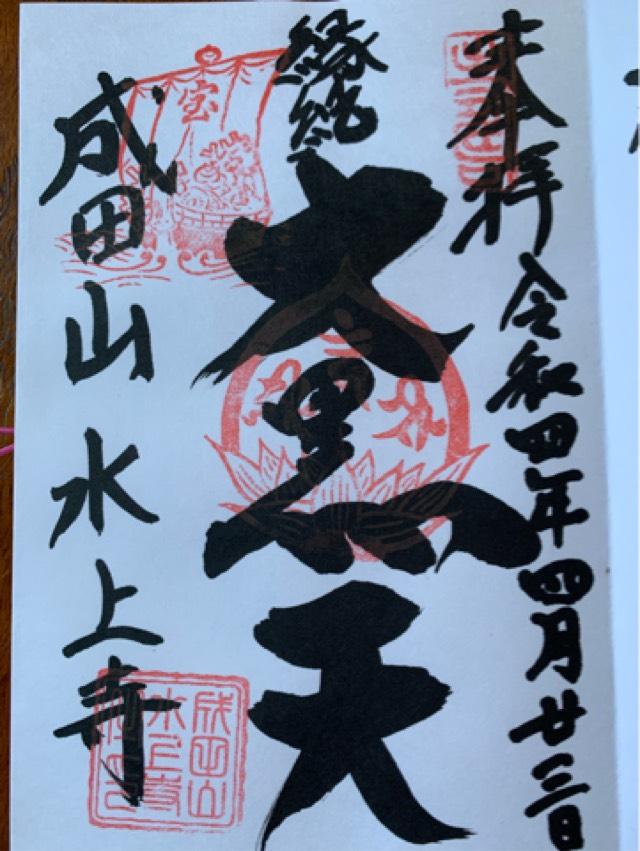 奉拝
令和四年四月廿三日
縁結
大黒天
成田山水上寺
宝
成田山水上寺